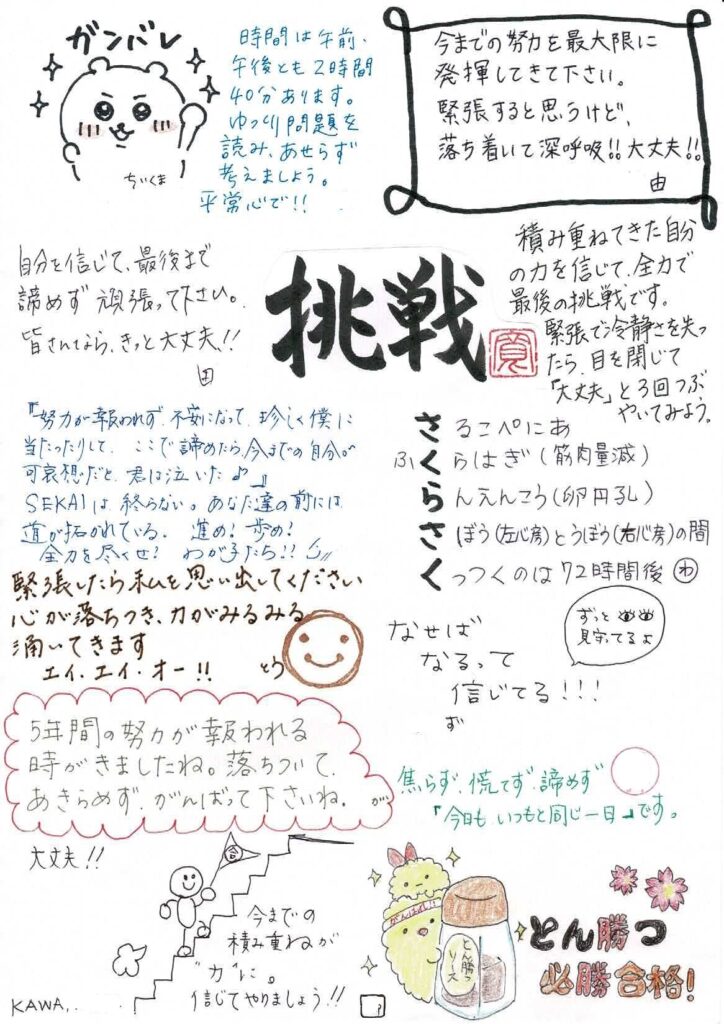 ガンバレ
ちいくま
時間は午前、
午後とも2時間
40分あります。
ゆっくり問題を
読み、あせらず
考えましょう。
平常心で!!
今までの努力を最大限に
発揮してきて下さい。
緊張すると思うけど、
落ち着いて深呼吸!!大丈夫!!
由
自分を信じて、最後まで
諦めず頑張って下さい。
皆さんなら、きっと大丈夫!!
田
挑戦
積み重ねてきた自分
の力を信じて、全力で
最後の挑戦です。
緊張で冷静さを失っ
たら、目を閉じて
「大丈夫」と3回つぶ
やいてみよう。
『努力が報われず、不安になって、珍しく僕に
当たったりして、ここで諦めたら、今までの自分が
可哀想だと、君は泣いた♪』
SEKAIは終らない。あなた達の前には
道が拓がれている。進め!歩め!
全力を尽くせ!わが子たち!!
さるこぺにあ
ふくらはぎ(筋肉量減)
らんえんこう(卵円孔)
さぼう(左心房)とうぼう(右心房)の間
くっつくのは72時間後 わ
緊張したら私を思い出してください
心が落ちつき、力がみるみる
湧いてきます
エイ、エイ、オー!!
とう
なせば
なるって
信じてる!!!
ず
ずっと
見守ってるよ
5年間の努力が報われる
時がきましたね。落ちついて、
あきらめず、がんばって下さいね。
が
焦らず、慌てず、諦めず
「今日も、いつもと同じ一日」です。
大丈夫!!
合
今までの
積み重ねが
"力"に。
信じてやりましょう!!
KAWA..
がんばれ!!
とん勝つ
ソース
とん勝つ
必勝合格!